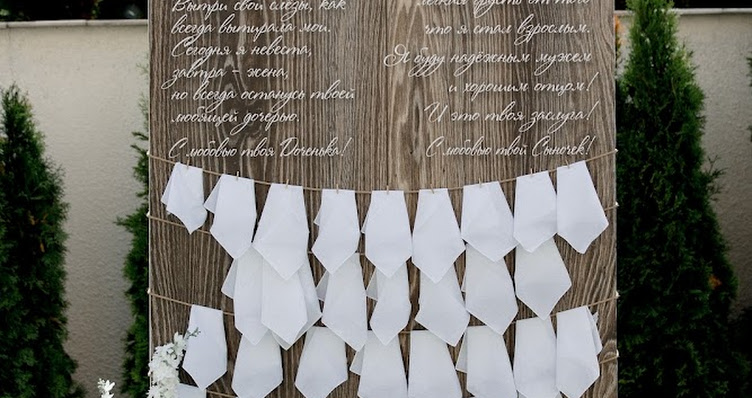 Вытри свои слезы, как
всегда вытирала мои.
Сегодня я невеста,
завтра - жена,
но всегда останусь твоей
любящей дочерью.
С любовью твоя Доченька!
легкая грусть от того
что я стал взрослым.
Я буду надёжным мужем
и хорошим отцом!
И это твоя заслуга!
С любовью твой Сыночек!